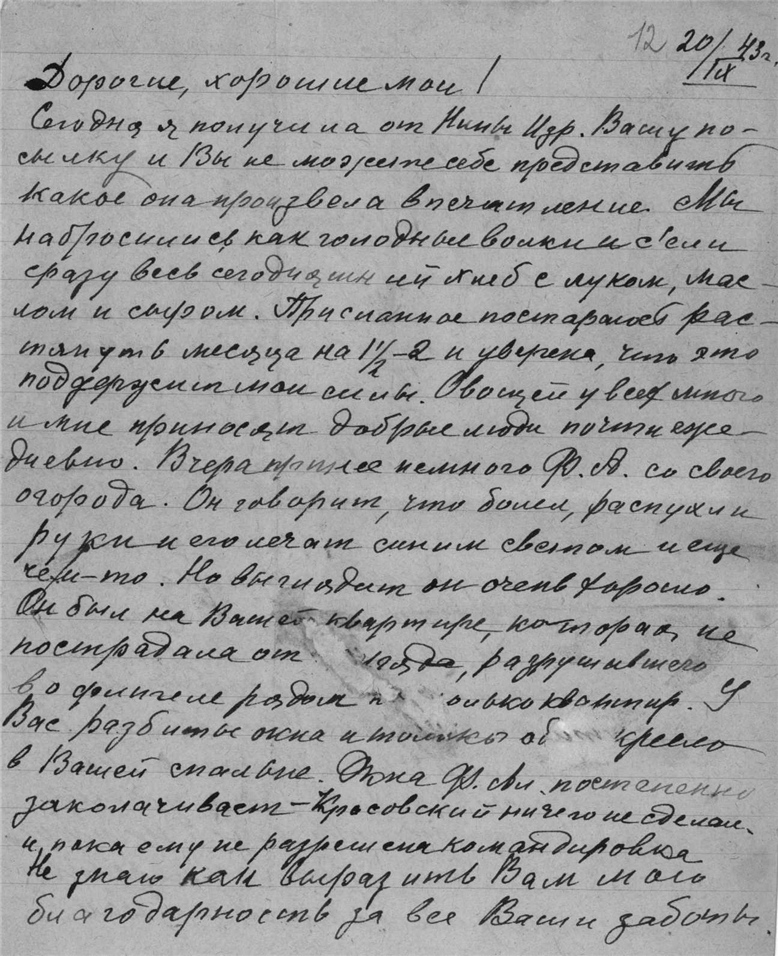 12 20/IX 43 г.
Дорогие, хорошие мои!
Сегодня я получила от Нины Изр. Вашу по-
сылку и Вы не можете себе представить
какое она произвела впечатление. Мы
набросились, как голодные волки и с'ели
сразу весь сегодняшний хлеб с луком, мас-
лом и сыром. Присланное постараюсь рас-
тянуть месяца на 1 1/2-2 и уверена, что это
поддержит мои силы. Овощей у всех много
и мне приносят добрые люди почти еже-
дневно. Вчера принес немного Ф. А. со своего
огорода. Он говорит, что болел, распухли
руки и его лечат синим светом и еще
чем-то. Но выглядит он очень хорошо.
Он был на Вашей квартире, которая не
пострадала от разрушившего
во флигеле рядом олько квартир. У
Вас разбиты окна и только об кресло
в Вашей спальне. Окна Ф. Ал. постепенно
заколачивает - Красовский ничего не сделал.
и, пока ему не разрешена командировка
Не знаю как выразить Вам мою
благодарность за все Ваши заботы.